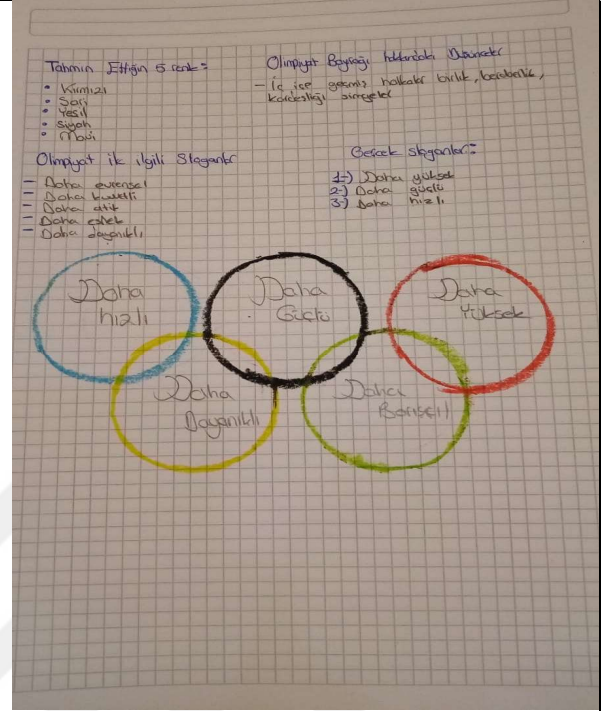 Tahmin Ettiğin 5 renk:
• Kırmızı
• Sarı
• Yeşil
• Siyah
• Mavi
Olimpiyat Bayrağı hakkındaki Düşünceler
– İç içe geçmiş halkalar birlik, beraberlik,
kardeşliği simgeler
Olimpiyat ile ilgili Sloganlar
– Daha evrensel
– Daha kuvvetli
– Daha atik
– Daha esnek
– Daha dayanıklı
Gerçek sloganlar:
1-) Daha yüksek
2-) Daha güçlü
3-) Daha hızlı
Daha
hızlı
Daha
Güçlü
Daha
Yüksek
Daha
Dayanıklı
Daha
Barışçıl